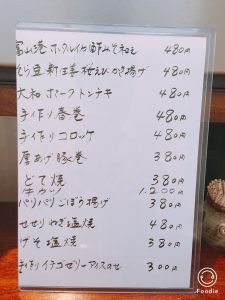 富山港 ホタルイカ酢みそ和え 480円
そら豆 新玉ねぎ 桜えび かき揚げ 480円
大和 ポークトンテキ 480円
手作り春巻 480円
手作りコロッケ 480円
厚あげ豚巻 380円
どて焼 380円
牛カツ 1,200円
パリパリごぼう揚げ 380円
せせりねぎ塩焼 480円
げそ塩焼 380円
手作りイチゴゼリーアイスのせ 300円
Foodie